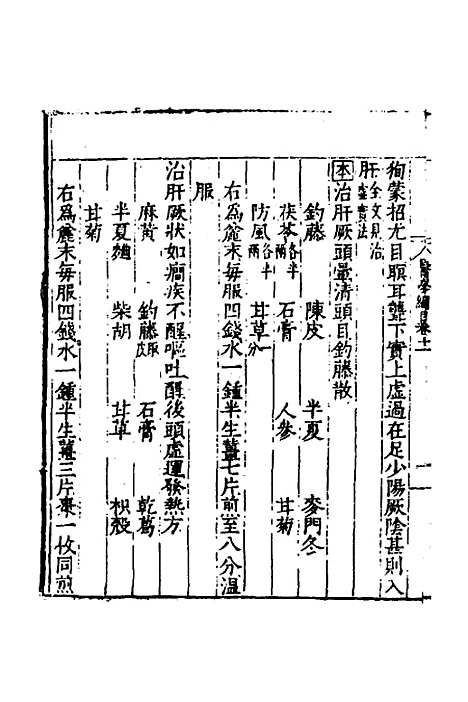 醫學綱目卷十一
徇蒙招尤目瞑耳聾下實上虛過在足少陽厥陰甚則入
肝全文見治肝虛實法
本治肝厥頭暈清頭目釣藤散
釣藤 陳皮 半夏 麥門冬
茯苓各半兩 石膏 人參 甘菊
防風各半兩 甘草一分
右爲麄末每服四錢水一鍾半生薑七片煎至八分溫
服
治肝厥狀如癎疾不醒嘔吐醒後頭虛運發熱方
麻黃 釣藤皮 石膏 乾葛
半夏麯 柴胡 甘草 枳殼
甘菊
右爲麄末每服四錢水一鍾半生薑三片棗一枚同煎